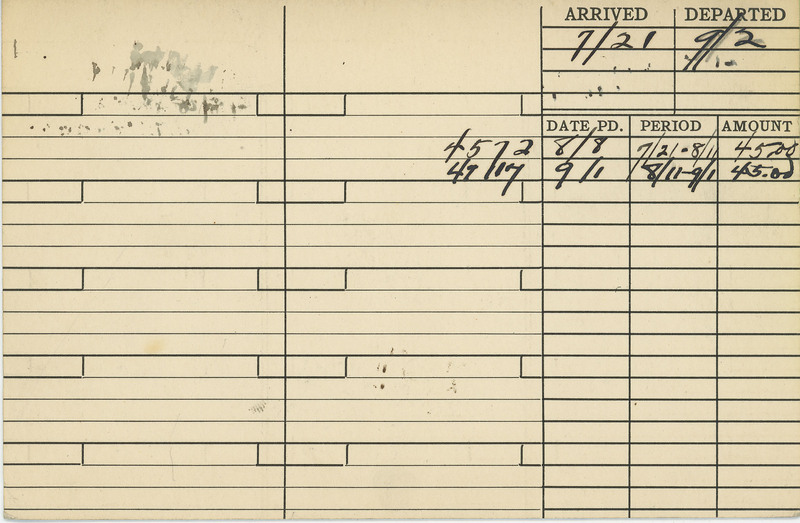 ARRIVED DEPARTED
7/21 9/2
DATE PD. PERIOD AMOUNT
4572 8/8 7/21-8/11 45.00
4717 9/1 8/11-9/1 45.00